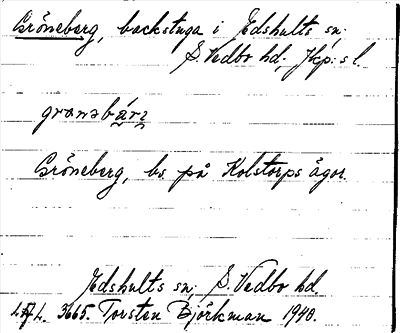 Gröneberg, backstuga i Edshults sn,
S. Vedbo hd, Jkp:s l.
Gröneberg, bs på Kolstorps ägor.
Edshults sn, S. Vedbo hd
3665. Torsten Björkman 1940.